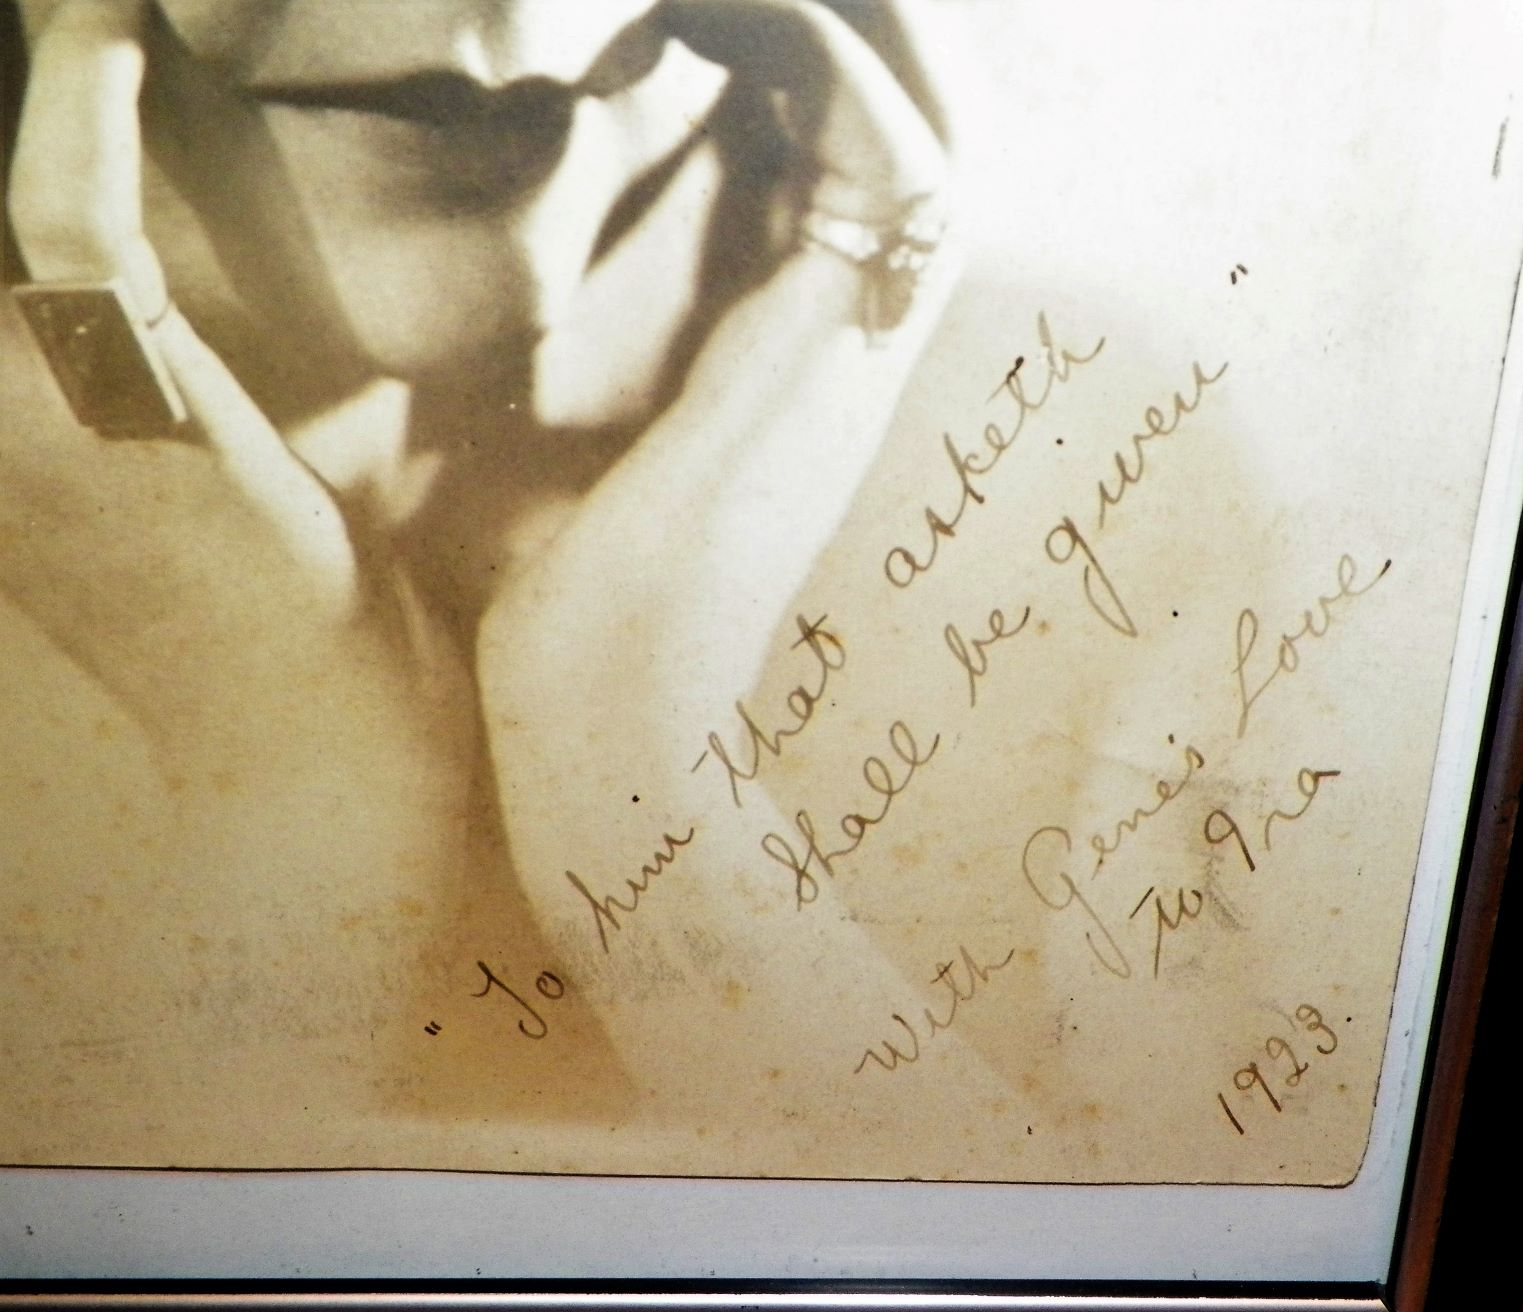 "To him that asketh
Shall be given"
With Gene's Love
to Ira
1923.